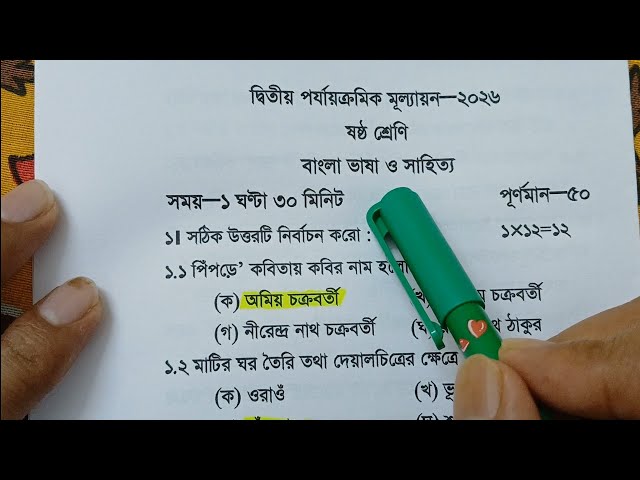 দ্বিতীয় পর্যায়ক্রমিক মূল্যায়ন—২০২৬
ষষ্ঠ শ্রেণি
বাংলা ভাষা ও সাহিত্য
সময়—১ ঘণ্টা ৩০ মিনিট পূর্ণমান—৫০
১। সঠিক উত্তরটি নির্বাচন করো : ১×১২=১২
১.১ পিঁপড়ে' কবিতায় কবির নাম
(ক) অমিয় চক্রবর্তী চক্রবর্তী
(গ) নীরেন্দ্র নাথ চক্রবর্তী ঠাকুর
১.২ মাটির ঘর তৈরি তথা দেয়ালচিত্রের
(ক) ওরাওঁ (খ)